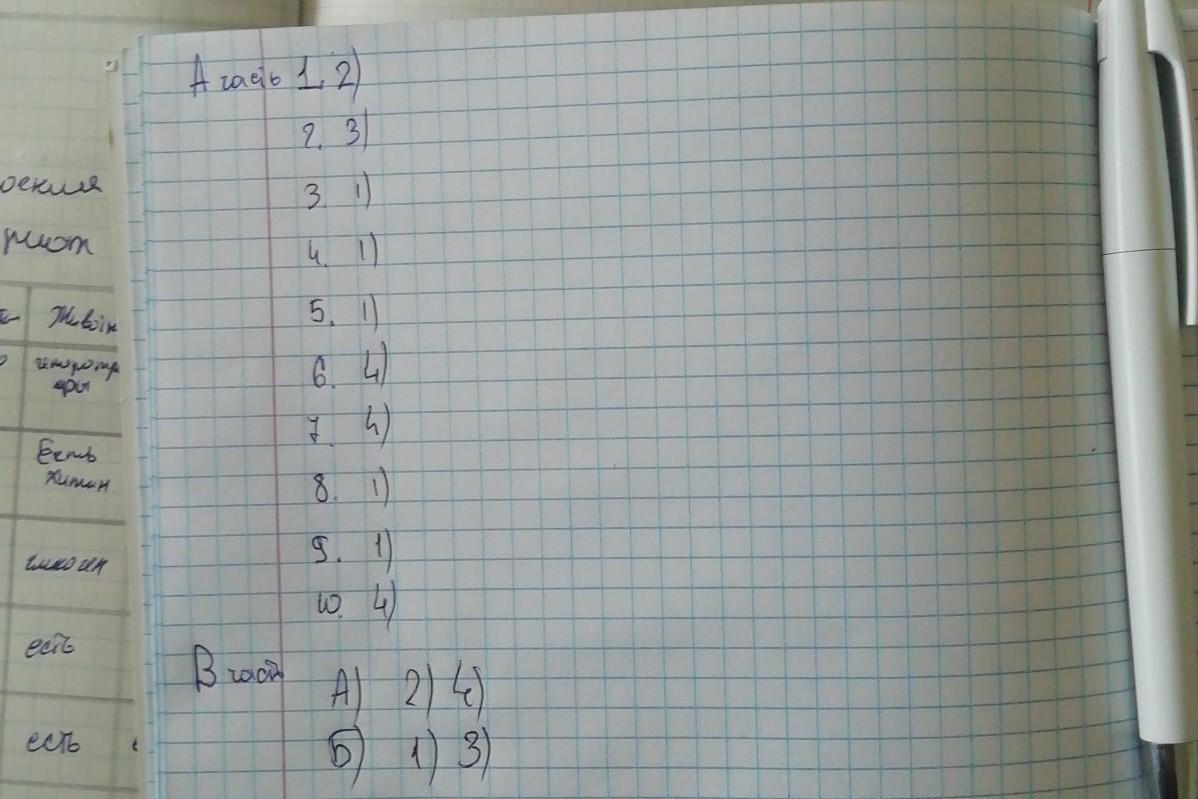 А часть 1. 2)
2. 3)
3. 1)
4. 1)
5. 1)
6. 4)
7. 4)
8. 1)
9. 1)
10. 4)
В часть
А) 2) 4)
Б) 1) 3)
Есть
хитин
гликоген
есть
есть